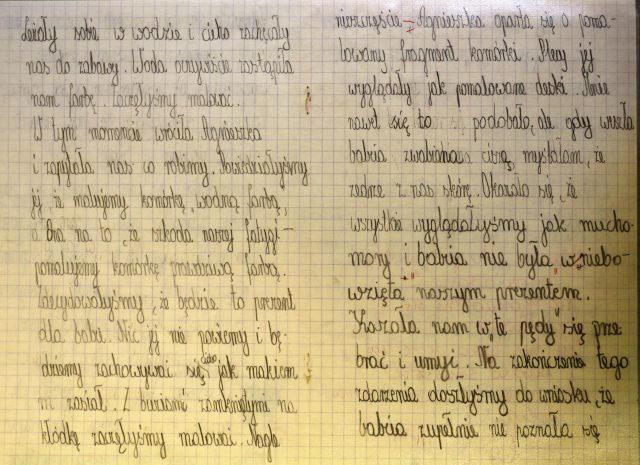 Leżały sobie w wodzie i cicho zachęcały
nas do zabawy. Woda oczywiście zastąpiła
nam farbę. Zaczęłyśmy malować.
W tym momencie wróciła Agnieszka
i zapytała nas co robimy. Powiedziałyśmy
jej, że malujemy komórkę „wodną farbą”,
a Ona na to, że szkoda naszej fatygi –
pomalujmy komórkę prawdziwą farbą.
Zdecydowałyśmy, że będzie to prezent
dla babci. Nic jej nie powiemy i bę-
dziemy zachowywać się cicho jak makiem
zasiał. Z buziami zamkniętymi na
kłódkę zaczęłyśmy malować. Nagle
nieszczęście – Agnieszka oparła się o poma-
lowany fragment komórki. Plecy jej
wyglądały jak pomalowane deski. Mnie
nawet się to podobało, ale gdy wyszła
babcia zwabiona ciszą, myślałam, że
zedrze z nas skórę. Okazało się, że
wszystkie wyglądałyśmy jak mucho-
mory i babcia nie była wniebo-
wzięta naszym prezentem.
Kazała nam w „te pędy” się prze
brać i umyć. Na zakończenie tego
zdarzenia doszłyśmy do wniosku, że
babcia zupełnie nie poznała się